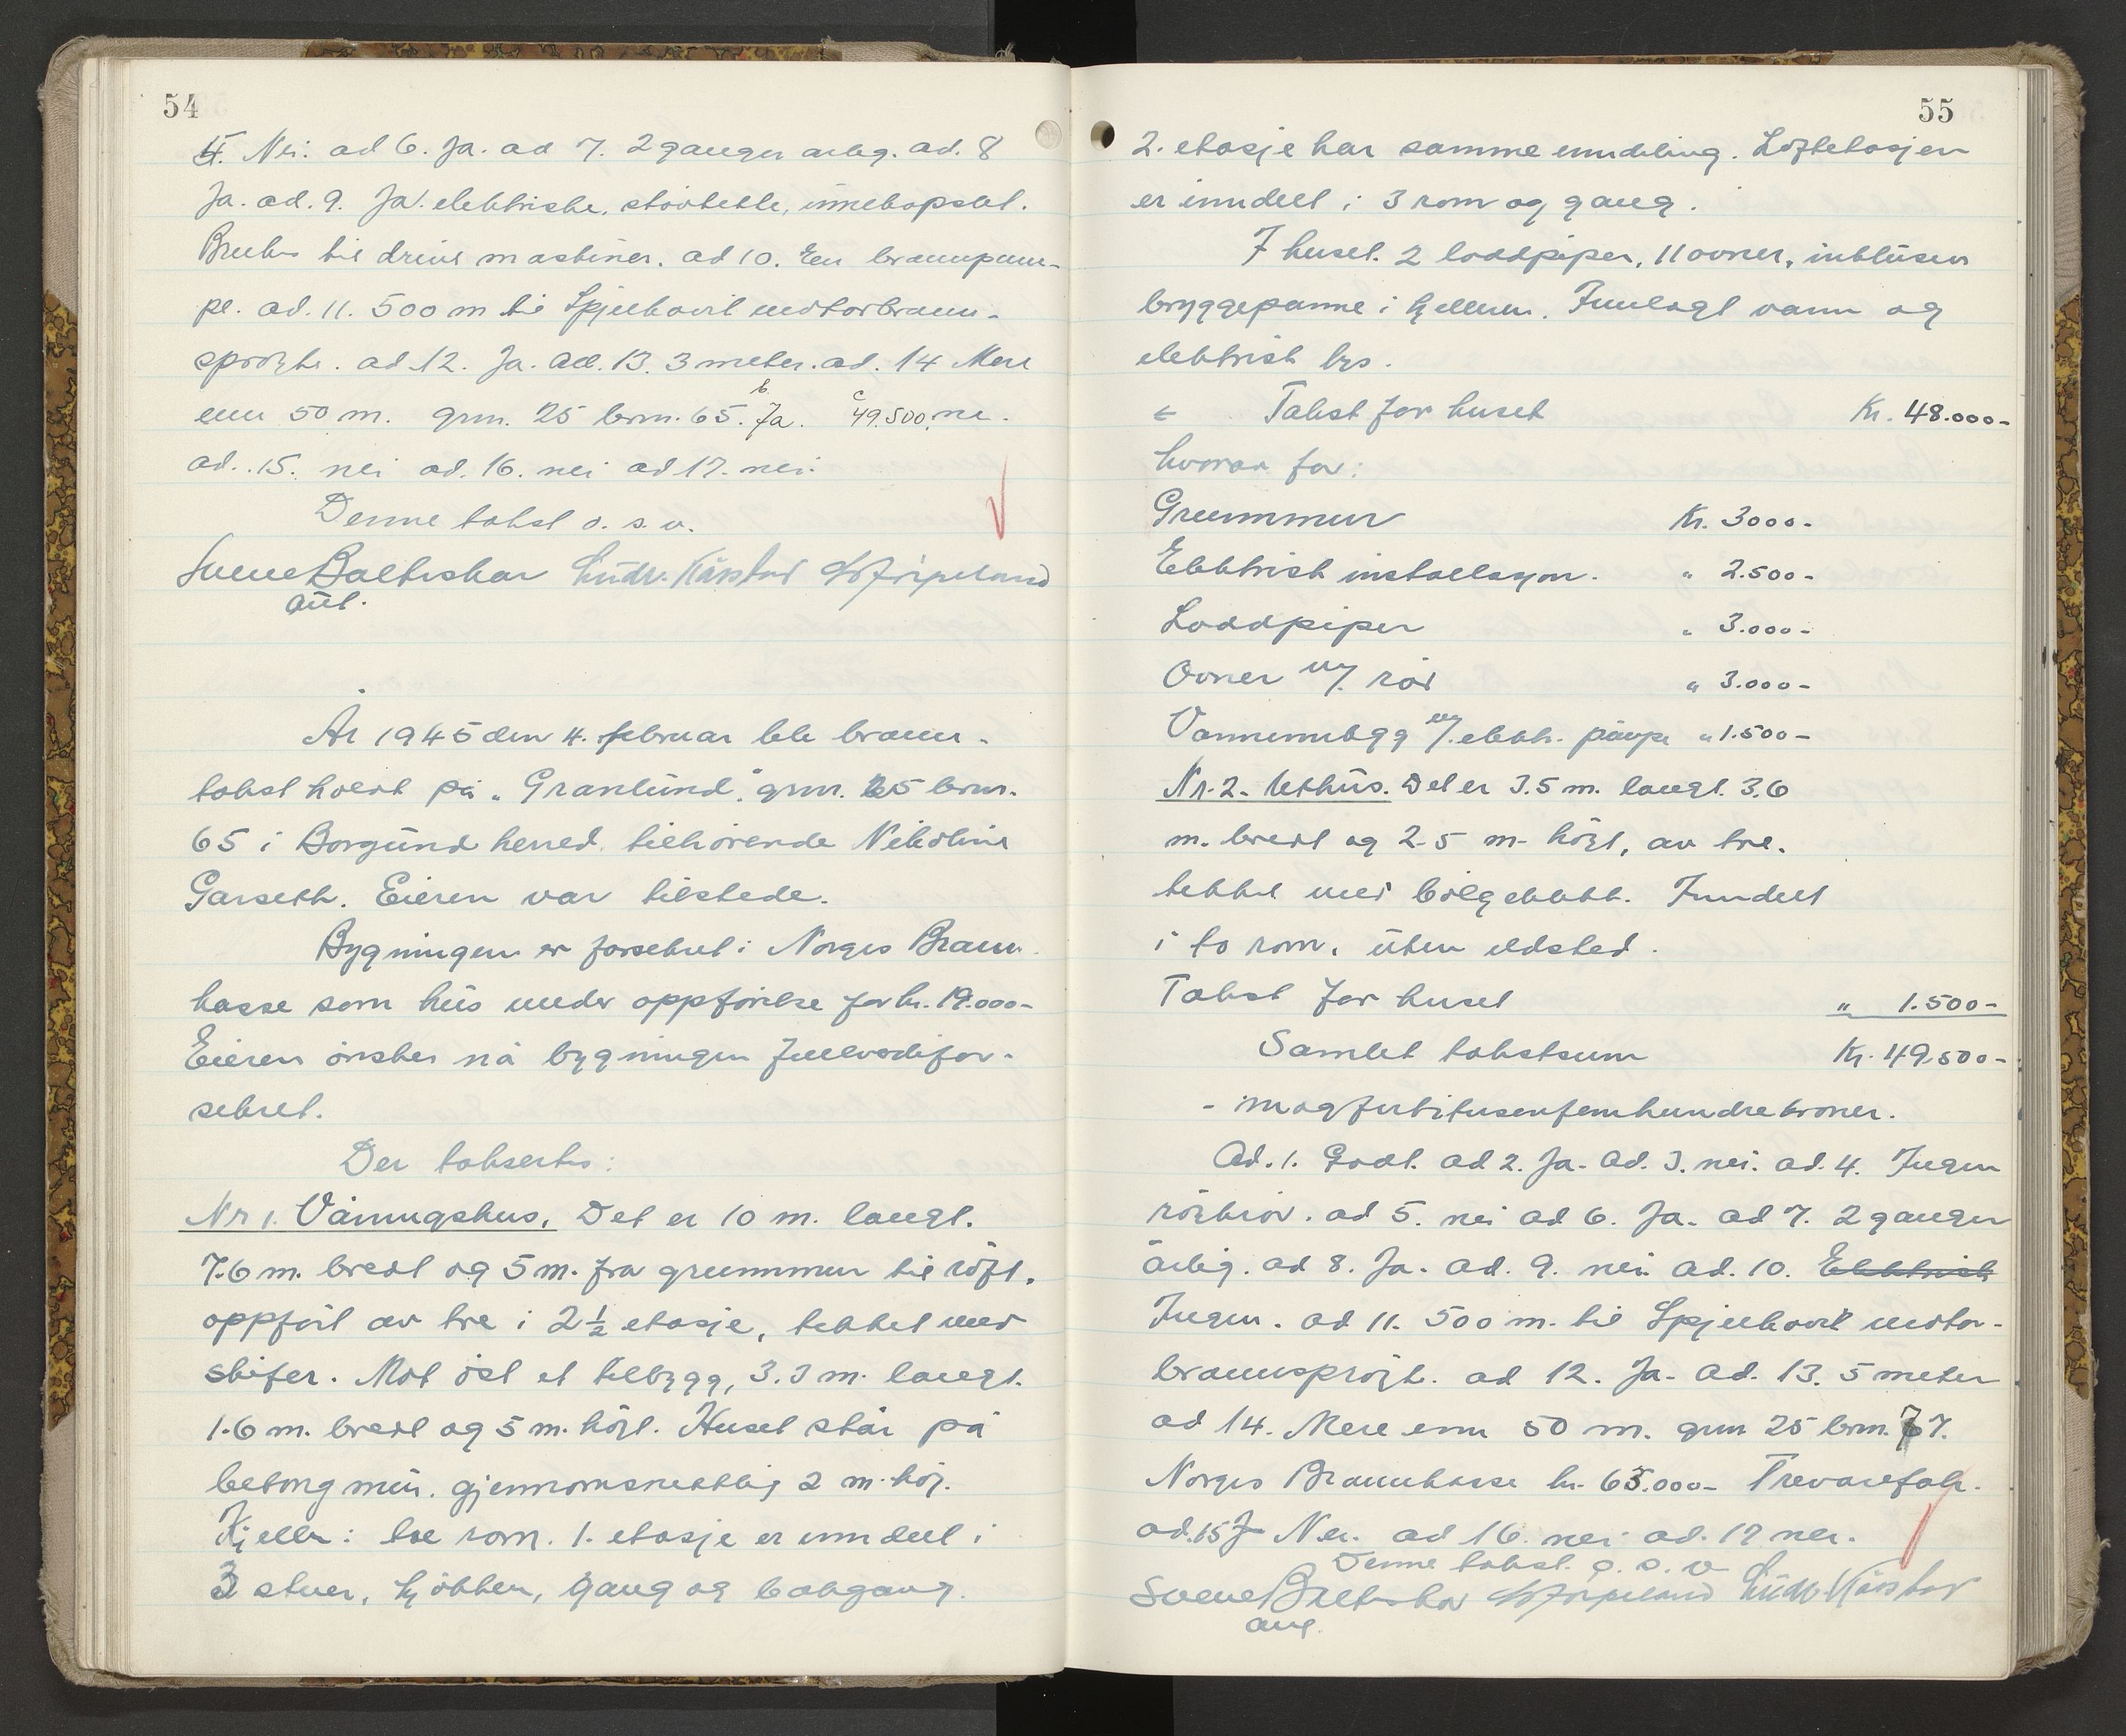 54
5. Nei. ad 6. Ja. ad 7. 2 ganger årlig. ad. 8
Ja. ad. 9. Ja. elektriske, støvtette, innekapslet.
Brukes til drive maskiner. ad 10. En brannpum-
pe. ad. 11. 500 m til Spjelkavik motorbrann-
sprøyte. ad 12. Ja. ad. 13. 3 meter. ad. 14 Mere
enn 50 m. grn. 25 brn. 65. b. Ja. c 49.500, ne.
ad. 15. nei ad. 16. nei ad 17. nei.
Denne takst o. s. v.
Svene Balteskar Ludv. Kårstad
aut.
År 1945 den 4. februar ble brann-
takst holdt på "Granlund", grn. 25 brn.
65 i Borgund herred, tilhørende Nikoline
Garseth. Eieren var tilstede.
Bygningen er forsikret i Norges Brann-
kasse som hus under oppførelse for kr. 19.000-
Eieren ønsker nå bygningen fullverdifor-
sikret.
Der taksertes:
Nr 1. Våningshus. Det er 10 m. langt.
7.6 m. bredt og 5 m. fra grunnmur til røft.
oppført av tre i 2 ½ etasje, tekket med
skifer. Mot øst et tilbygg, 3.3 m. langt.
1.6 m. bredt og 5 m. høgt. Huset står på
betongmur. gjennomsnittlig 2 m. høg.
Kjeller: tre rom. 1. etasje er inndelt i
3 stuer, kjøkken, gang og bakgang.
55
2. etasje har samme inndeling. Loftetasjen
er inndelt i 3 rom og gang.
I huset. 2 loddpiper, 11 ovner, inklusiv
bryggepanne i kjelleren. Innlagt vann og
elektrisk lys.
Takst for huset Kr. 48.000-
hvorav for:
Grunnmur Kr. 3000-
Elektrisk installasjon. " 2.500-
Loddpiper " 3.000-
Ovner m/. rør " 3.000-
Vanninnlegg m/. elektr. pumpe " 1.500-
Nr. 2. Uthus. Det er 3.5 m. langt. 3.6
m. bredt og 2.5 m. høgt, av tre.
tekket med bølgeblekk. Inndelt
i to rom, uten ildsted.
Takst for huset " 1.500-
Samlet takstsum Kr. 49.500-
- niogfirtitusenfemhundre kroner.
Ad. 1. Godt. ad 2. Ja. ad. 3. nei. ad. 4. Ingen
rørbrør. ad 5. nei ad 6. Ja. ad 7. 2 ganger
årlig. ad 8. Ja. ad. 9. nei ad. 10. Elektrisk
Ingen. ad 11. 500 m. til Spjelkavik motor-
brannsprøyt. ad 12. Ja. ad. 13. 5 meter
ad 14. Mere enn 50 m. grn 25 brn. 77.
Norges Brannkasse kr. 65.000- Trevarefabr.
ad. 15 Nei. ad 16. nei ad. 17 nei.
Denne takst. o. s. v
Svene Balteskar Ludv. Kårstad